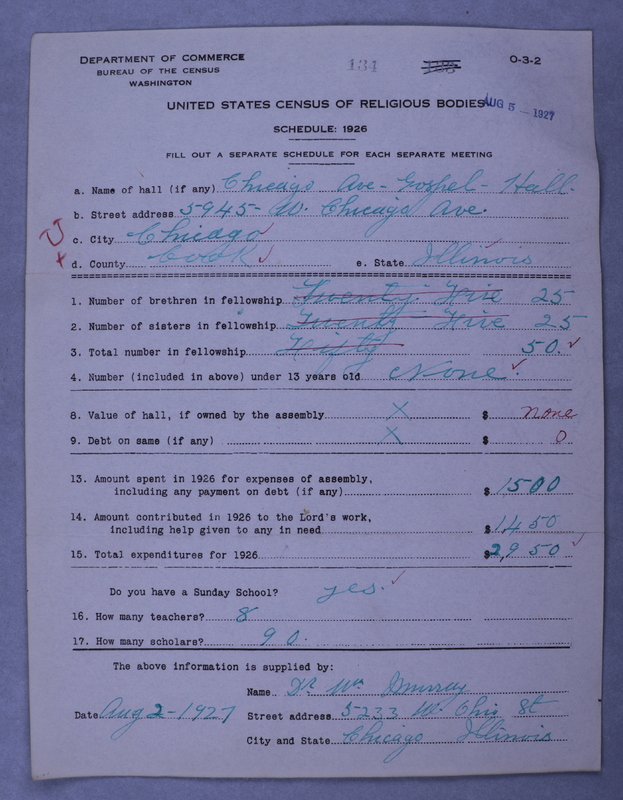 DEPARTMENT OF COMMERCE
BUREAU OF THE CENSUS
WASHINGTON
134
O-3-2
UNITED STATES CENSUS OF RELIGIOUS BODIES
AUG 5 - 1927
SCHEDULE: 1926
FILL OUT A SEPARATE SCHEDULE FOR EACH SEPARATE MEETING
a. Name of hall (if any) Chicago Ave - Gospel - Hall.
b. Street address 5945 W. Chicago Ave.
c. City Chicago
d. County Cook e. State Illinois
1. Number of brethren in fellowship Twenty Five 25
2. Number of sisters in fellowship Twenty Five 25
3. Total number in fellowship Fifty 50.
4. Number (included in above) under 13 years old None
8. Value of hall, if owned by the assembly X $ none
9. Debt on same (if any) X $ 0
13. Amount spent in 1926 for expenses of assembly,
including any payment on debt (if any) $ 1500
14. Amount contributed in 1926 to the Lord's work,
including help given to any in need $ 1450
15. Total expenditures for 1926 $ 2950
Do you have a Sunday School? yes.
16. How many teachers? 8
17. How many scholars? 90.
The above information is supplied by:
Name Dr Wm Murray
Date Aug 2-1927 Street address 5233 W. Ohio St
City and State Chicago Illinois